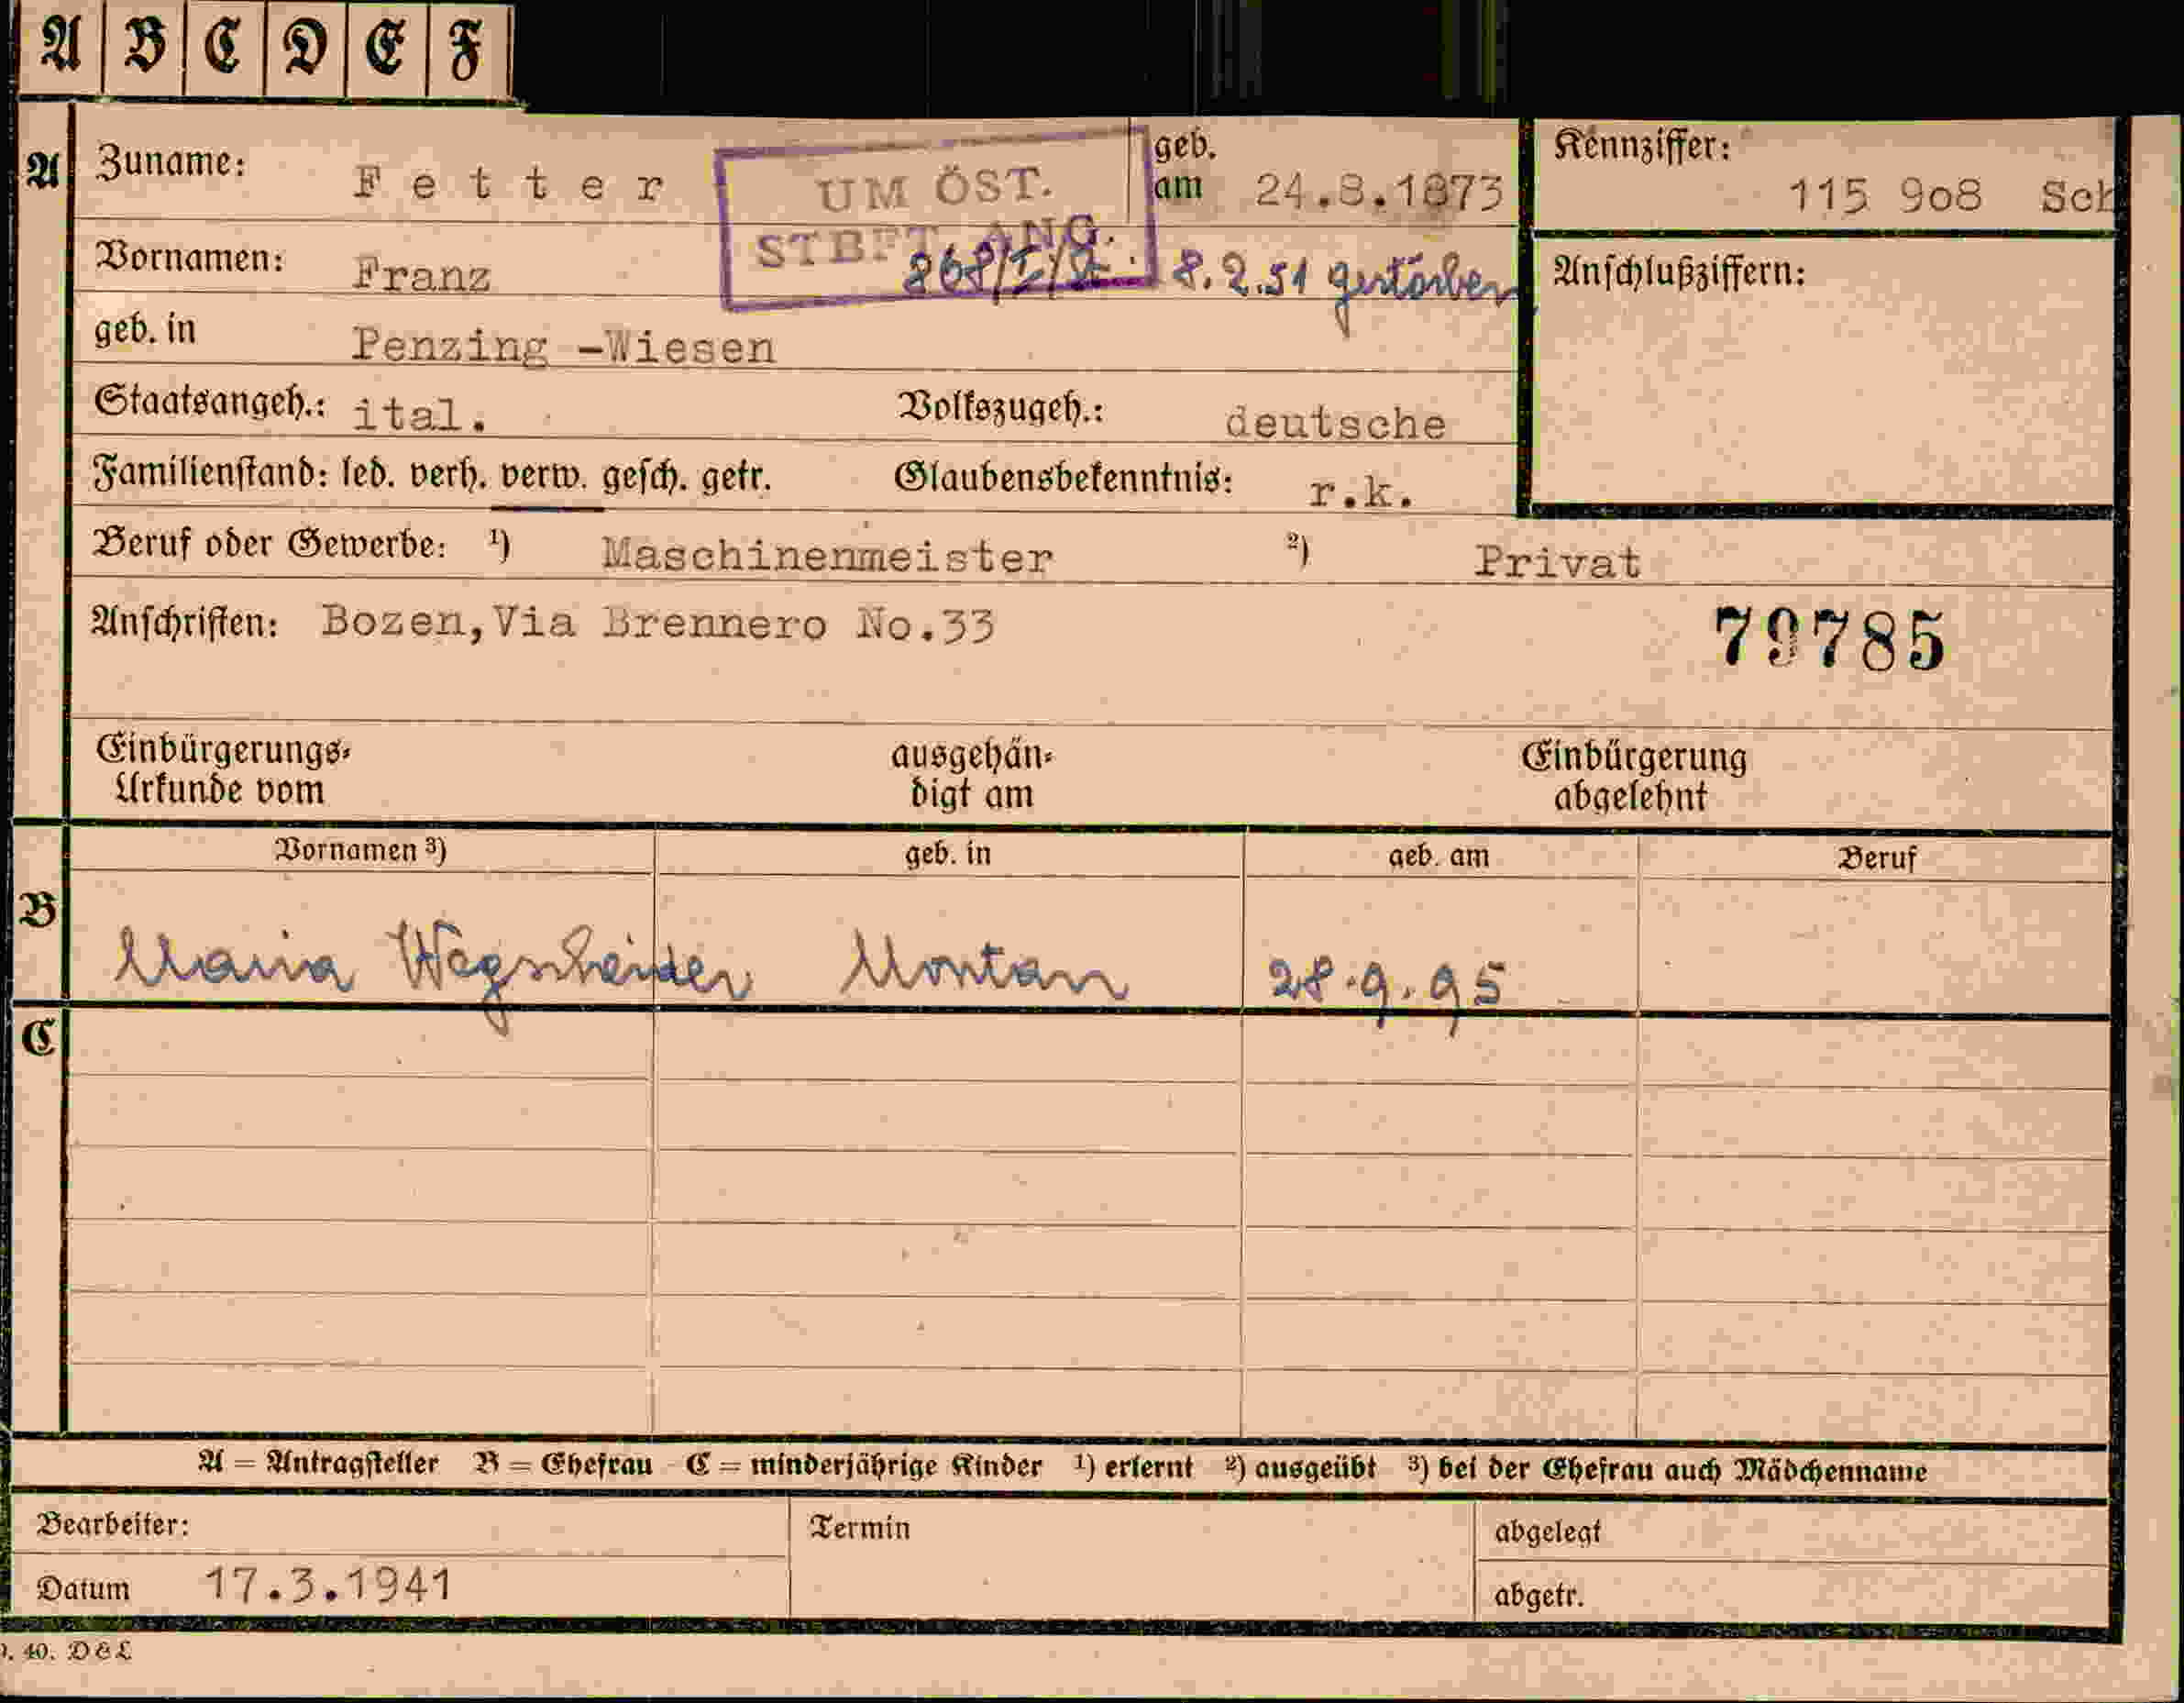 A B C D E F
A Zuname: Fetter geb. am 24.8.1873 Kennziffer: 115 908 Sch
UM ÖST.
STBFT. ANG.
Vornamen: Franz 8.2.51 gestorben Anschlußziffern:
geb. in Penzing -Wiesen
Staatsangeh.: ital. Volkszugeh.: deutsche
Familienstand: led. verh. verw. gesch. getr. Glaubensbekenntnis: r.k.
Beruf oder Gewerbe: ¹) Maschinenmeister ²) Privat
Anschriften: Bozen, Via Brennero No.33
79785
Einbürgerungs- ausgehän- Einbürgerung
Urkunde vom digt am abgelehnt
Vornamen ³) geb. in geb. am Beruf
B Maria Wegscheider Montan 28.9.95
C
A = Antragsteller B = Ehefrau C = minderjährige Kinder ¹) erlernt ²) ausgeübt ³) bei der Ehefrau auch Mädchenname
Bearbeiter: Termin abgelegt
Datum 17.3.1941 abgetr.
40. D&L